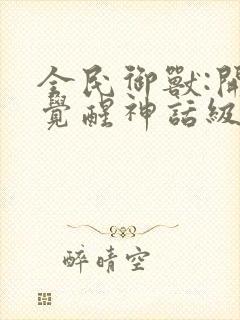 全民御獸:開
覺醒神話級
醉晴空